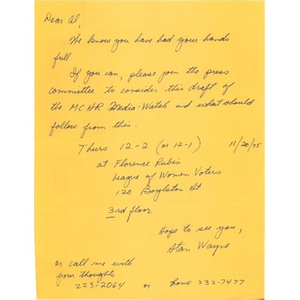 Dear Al,
We know you have had your hands
full.
If you can, please join the press
committee to consider this draft of
the MCHR Media-Watch and what should
follow from this.
Thurs 12-2 (or 12-1) 11/20/75
at Florence Rubin
League of Women Voters
120 Boylston St
3rd floor
Hope to see you,
Stan Wayne
or call me with
your thoughts
223-2064 or home 232-7477